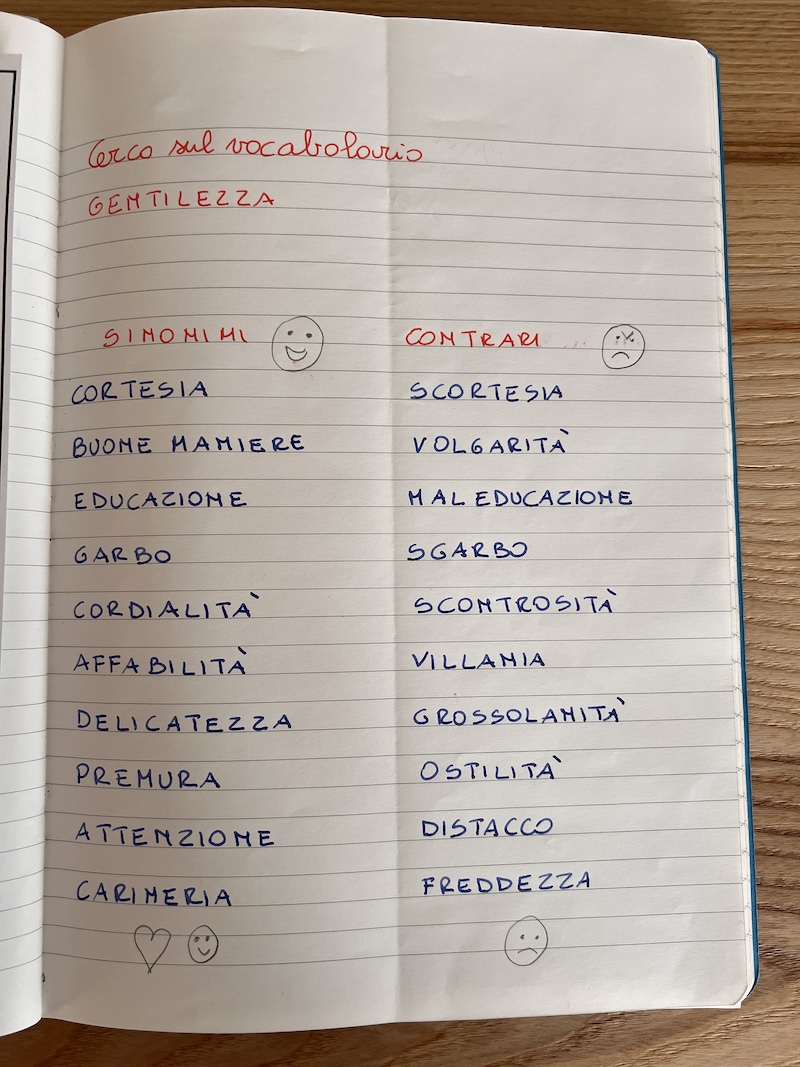 Cerco sul vocabolario
GENTILEZZA
SINONIMI CONTRARI
CORTESIA SCORTESIA
BUONE MANIERE VOLGARITÀ
EDUCAZIONE MALEDUCAZIONE
GARBO SGARBO
CORDIALITÀ SCONTROSITÀ
AFFABILITÀ VILLANIA
DELICATEZZA GROSSOLANITÀ
PREMURA OSTILITÀ
ATTENZIONE DISTACCO
CARINERIA FREDDEZZA